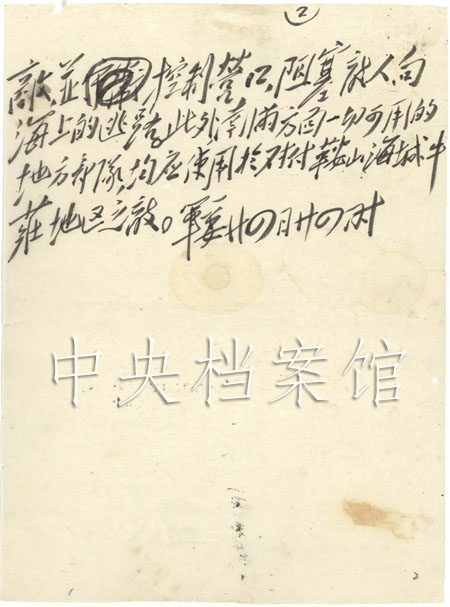 2
敵並控制營口,阻塞敵人向
海上的逃路。此外南滿方面一切可用的
地方部隊,均应使用於对付鞍山海城牛
莊地区之敵。軍委廿四日廿四时
中央档案馆
2